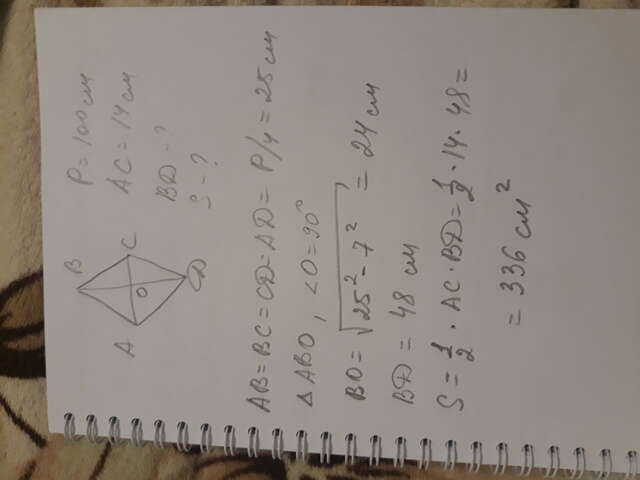 B
P = 100 см
A
C
AC = 14 см
O
BD - ?
D
S - ?
AB = BC = CD = AD = P/4 = 25 см
△ ABO, ∠O = 90°
BO = √25² - 7² = 24 см
BD = 48 см
S = 1/2 · AC · BD = 1/2 · 14 · 48 =
= 336 см²